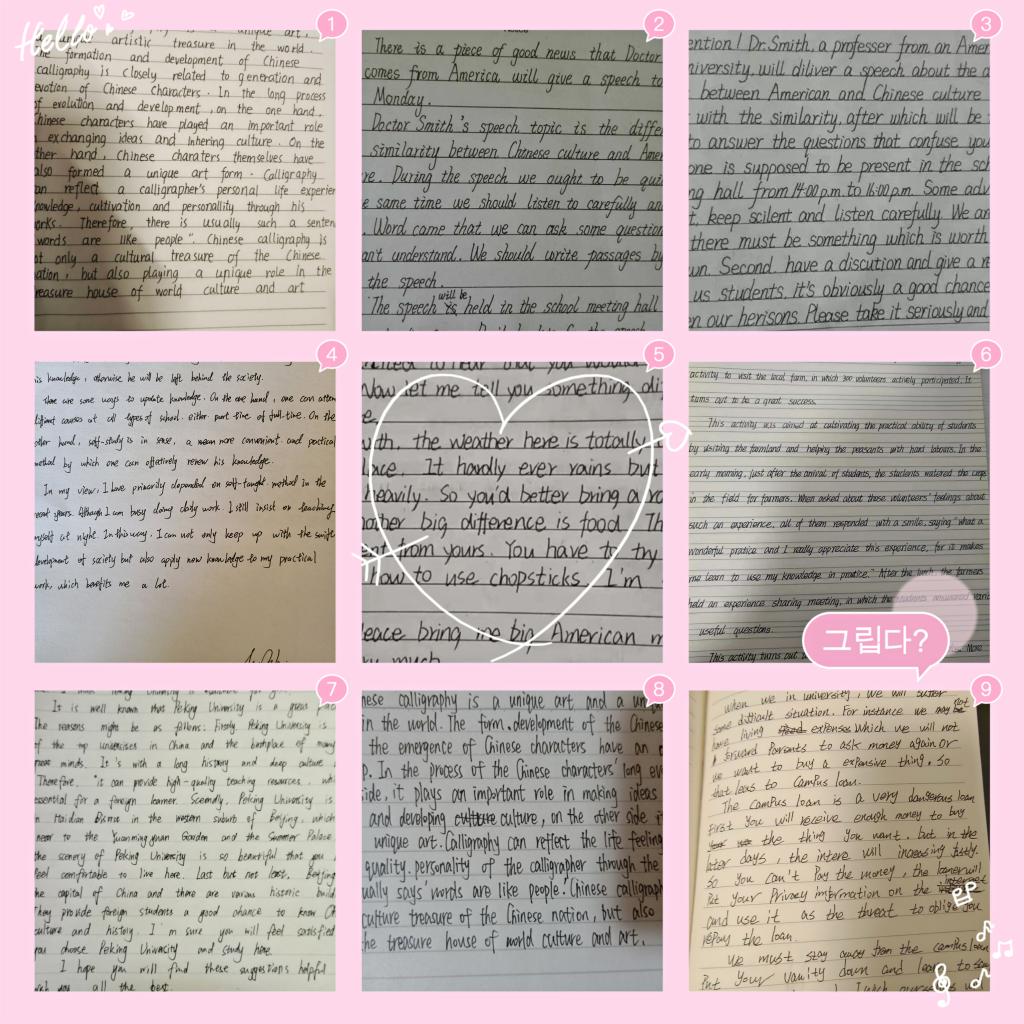 Hello
1
unique art,
artistic treasure in the world.
The formation and development of Chinese
calligraphy is closely related to generation and
evotion of Chinese characters. In the long process
of evolution and development, on the one hand,
Chinese characters have played an important role
exchanging ideas and inhering culture. On the
other hand, Chinese charaters themselves have
also formed a unique art form. Calligraphy
an reflect a calligrapher's personal life experien
nowledge, cultivation and personallity through his
orks. Therefore, there is usually such a senten
words are like people". Chinese calligraphy is
ot only a cultural treasure of the Chinese
ation, but also playing a unique role in the
reasure house of world culture and art
2
There is a piece of good news that Doctor
comes from America, will give a speech to
Monday.
Doctor Smith's speech topic is the diffe
similarity between Chinese culture and Amer
e. During the speech we ought to be qui
e same time we should listen to carefully an
. Word came that we can ask some question
an't understand. We should write passages by
the speech.
The speech will be held in the school meeting hall
3
ention! Dr. Smith, a professer from an Amer
niversity, will diliver a speech about the d
between American and Chinese culture
with the similarity, after which will be
to answer the questions that confuse you
one is supposed to be present in the sch
ng hall from 14:00 p.m. to 16:00 p.m. Some adv
t, keep scilent and listen carefully. We an
there must be something which is worth
wn. Second, have a discution and give a r
us students, it's obviously a good chance
n our herisons. Please take it seriously and
4
is knowledge, otherwise he will be left behind the society.
There are some ways to update knowledge. On the one hand, one can atten
different courses at all types of school, either part-time of full-time. On the
other hand, self-study is in sense, a mean more convenient and pactical
method by which one can effectively renew his knowledge.
In my view, I have primarily depended on self-taught method in the
recent years. Although I am busy doing daily work, I still insist on teaching
myself at night. In this way, I can not only keep up with the swift
development of society but also apply new knowledge to my practical
work, which benefits me a lot.
5
Now let me tell you something di
e.
uth, the weather here is totally
lace. It hardly ever rains but
heavily. So you'd better bring a ra
nother big difference is food. Th
ent from yours. You have to try
how to use chopsticks. I'm
lease bring me big American m
ry much
6
activity to visit the local farm, in which 300 volunteers actively participated. It
turns out to be a great success.
This activity was aimed at cultivating the practical ability of students
by visiting the farmland and helping the peasants with hard labours. In the
early morning, just after the arrival of students, the students watered the crops
in the field for farmers. When asked about those volunteers' feelings about
such an experience, all of them responded with a smile, saying "what a
wonderful pratice and I really appreciate this experience, for it makes
me learn to use my knowledge in pratice." After the lunch, the farmers
held an experience sharing meeting, in which the students answered
useful questions.
This activity turns out More
그립다?
7
It is well known that Peking University is a great
The reasons might be as follows: Firsly, Peking University is
of the top universises in China and the birthplace of many
minds. It's with a long history and deep culture
Therefore, it can provide high-quality teaching resources,
essential for a foreign learner. Scemdly, Peking University is
in Haidian Bisrice in the western suburb of Beijing, which
near to the Yuanmingyuan Gaarden and the Summer Palace
the scenery of Peking University is so beautiful that you
feel comfortable to live here. Last but not least, Beijing
the capital of China and there are various historic build
They provide foreign students a good chance to know Ch
culture and history. I'm sure you will feel satisfied
you choose Peking University and study here
I hope you will find these suggestions helpful
wish you all the best.
8
nese calligraphy is a unique art, and a un
in the world. The form, development of the Chinese
the emergence of Chinese characters have an
p. In the process of the Chinese characters' long ev
side, it plays an important role in making ideas
and developing culture, on the other side it
unique art. Calligraphy can reflect the life feeling
quality, personality of the calligrapher through the
ually says 'words are like people.' Chinese calligraph
culture treasure of the Chinese nation, but also
he treasure house of world culture and art.
9
when we in university, we will suffer
some difficult situation. For instance we may not
have living expenses which we will not
forward Parents to ask money again or
we want to buy a expensive thing. So
that leas to Campus loan.
The campus loan is a very dangerous loan
First You will receive enough money to buy
the thing You want, but in the
later days, the intere will increasing
So You can't Pay the money, the loner will
Put your Privacy imformation on the
and use it as the threat to oblige you
repay the loan.
We must stay away from the campus loan
Put Your vanity down and lean to